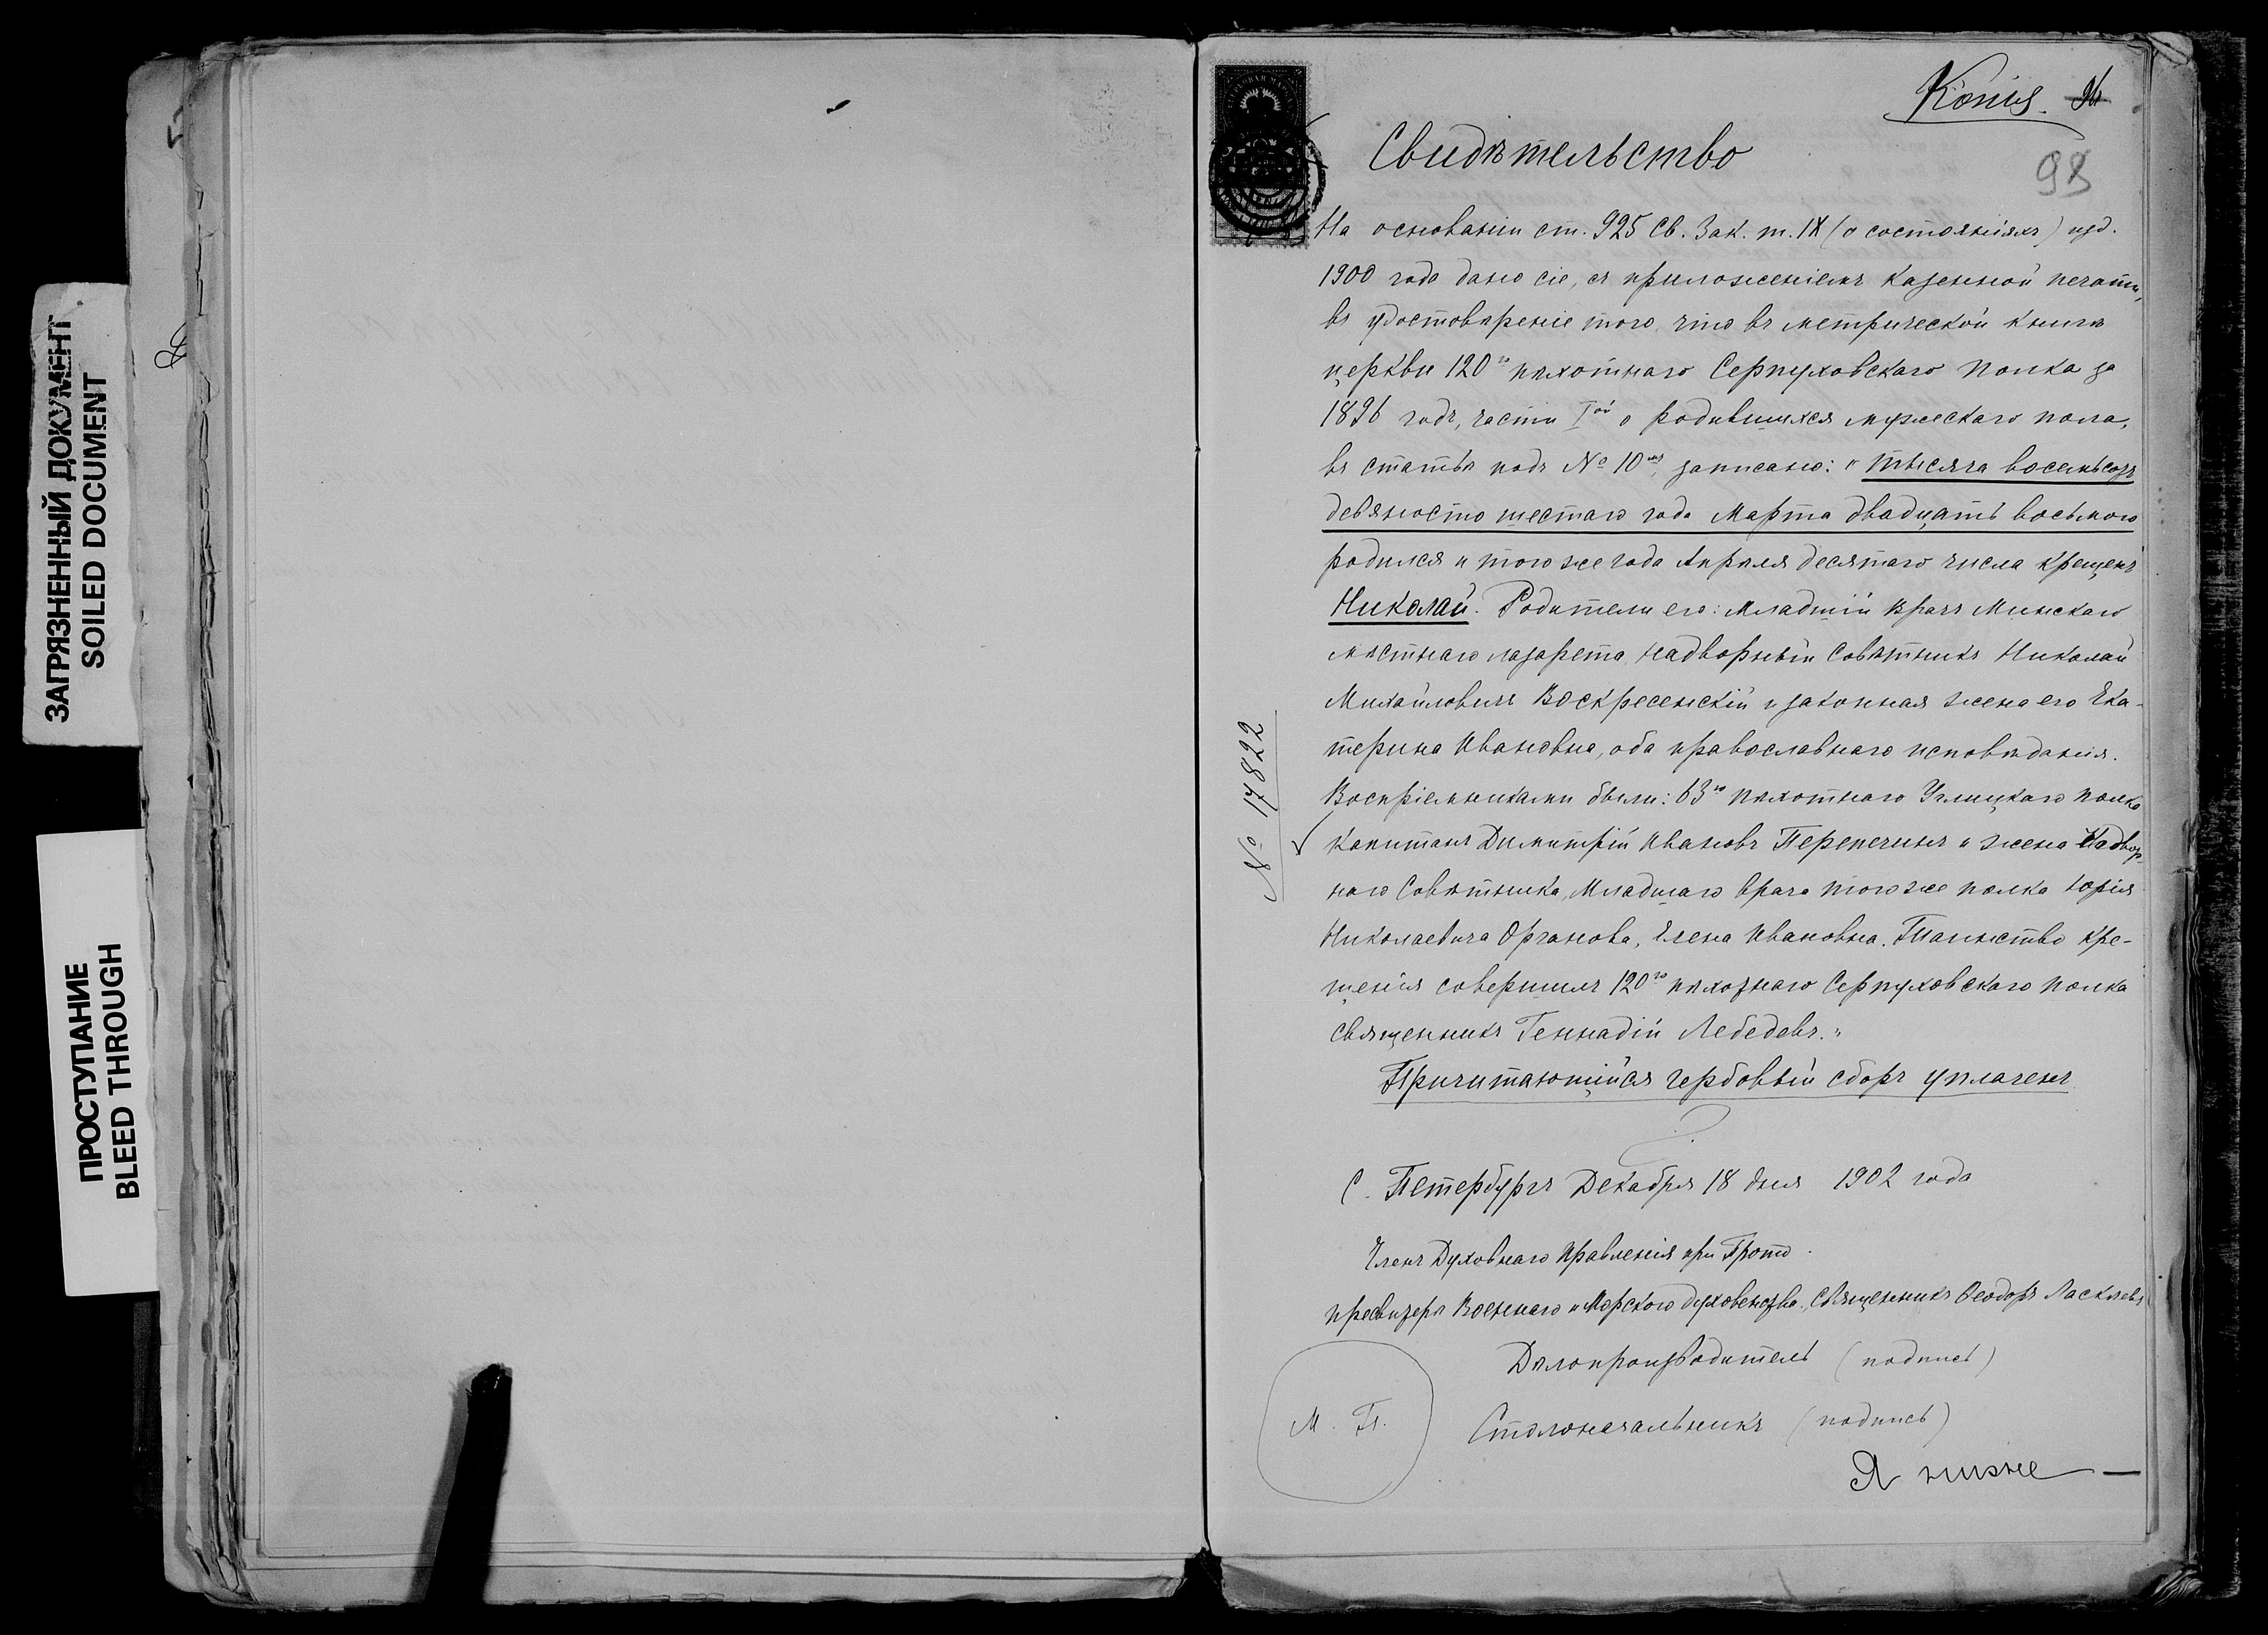 ЗАГРЯЗНЕННЫЙ ДОКУМЕНТ
SOILED DOCUMENT
ПРОСТУПАНИЕ
BLEED THROUGH
Копія.
98
Свидѣтельство
На основаніи ст. 925 Св. Зак. т. IX (о состояніяхъ) изд.
1900 года дано сіе, съ приложеніемъ казенной печати,
въ удостовѣреніе того, что въ метрической книгѣ
церкви 120го пѣхотнаго Серпуховскаго полка за
1896 годъ, части Iой о родившихся мужескаго пола,
въ статьѣ подъ № 10мъ, записано: "тысяча восемьсотъ
девяносто шестаго года Марта двадцать восьмого
родился и того же года Апрѣля десятаго числа крещенъ
Николай. Родители его: Младшій врачъ Минскаго
мѣстнаго лазарета, Надворный Совѣтникъ Николай
Михайловичъ Воскресенскій и законная жена его Ека-
терина Ивановна, оба православнаго исповѣданія.
Воспріемниками были: 63го пѣхотнаго Углицкаго полка
Капитанъ Димитрій Ивановъ Перепечинъ и жена Надвор-
наго Совѣтника, Младшаго врача того же полка Юрія
Николаевича Органова, Елена Ивановна. Таинство кре-
щенія совершилъ 120го пѣхотнаго Серпуховскаго полка
священникъ Геннадій Лебедевъ."
Причитающійся гербовый сборъ уплаченъ
С. Петербургъ Декабря 18 дня 1902 года
Членъ Духовнаго Правленія при Прото-
пресвитерѣ Военнаго и Морского духовенства, Священникъ Ѳеодоръ Ласкѣевъ
Дѣлопроизводитель (подпись)
М. П.
Столоначальникъ (подпись)
Я ниже —
№ 17822